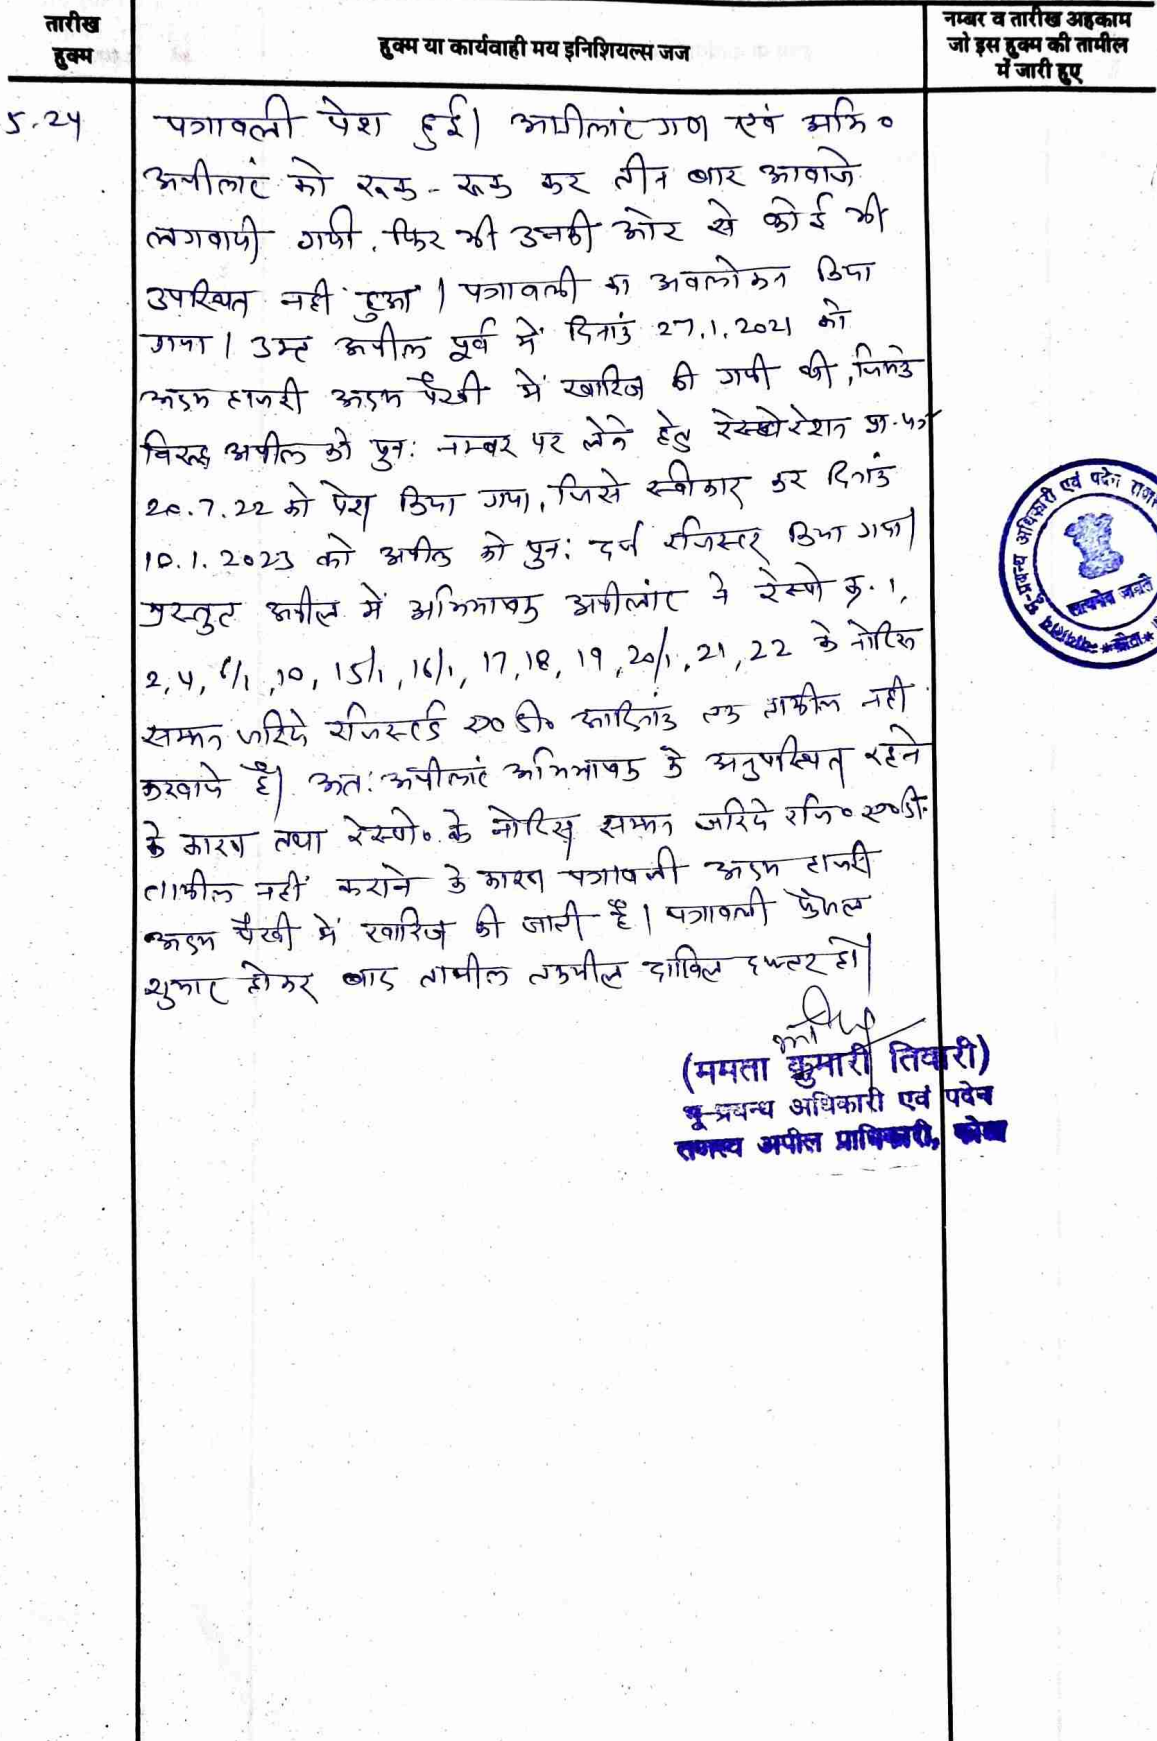 तारीख
हुक्म
हुक्म या कार्यवाही मय इनिशियल्स जज
नम्बर व तारीख अहकाम
जो इस हुक्म की तामील
में जारी हुए
5.24
पत्रावली पेश हुई। अपीलांट गण एवं अभि०
अपीलांट को रूक-रूक कर तीन बार आवाजे
लगवायी गयी, फिर भी उनकी ओर से कोई भी
उपस्थित नही हुआ। पत्रावली का अवलोकन किया
गया। उक्त अपील पूर्व में दिनांक 27.1.2021 को
अदम हाजरी अदम पैरवी में खारिज की गयी थी, जिसके
विरूद्ध अपील को पुन: नम्बर पर लेने हेतु रेस्टोरेशन प्रा.पत्र
20.7.22 को पेश किया गया, जिसे स्वीकार कर दिनांक
10.1.2023 को अपील को पुन: दर्ज रजिस्टर किया गया।
प्रस्तुत अपील में अभिभाषक अपीलांट ने रेस्पो क्र. 1,
2, 4, 6/1, 10, 15/1, 16/1, 17, 18, 19, 20/1, 21, 22 के नोटिस
सम्मन जरिये रजिस्टर्ड ए०डी० आदिनांक तक तामील नही
करवाये है। अत: अपीलांट अभिभाषक के अनुपस्थित रहने
के कारण तथा रेस्पो० के नोटिस सम्मन जरिये रजि० ए०डी०
तामील नहीं कराने के कारण पत्रावली अदम हाजरी
अदम पैरवी में खारिज की जाती है। पत्रावली फैसल
शुमार होकर बाद तामील तकमील दाखिल दफ्तर हो।
(ममता कुमारी तिवारी)
भू-प्रबन्ध अधिकारी एवं पदेन
राजस्व अपील प्राधिकारी, कोटा
भू-प्रबन्ध अधिकारी एवं पदेन राजस्
सत्यमेव जयते
न्यायालय
*कोटा*